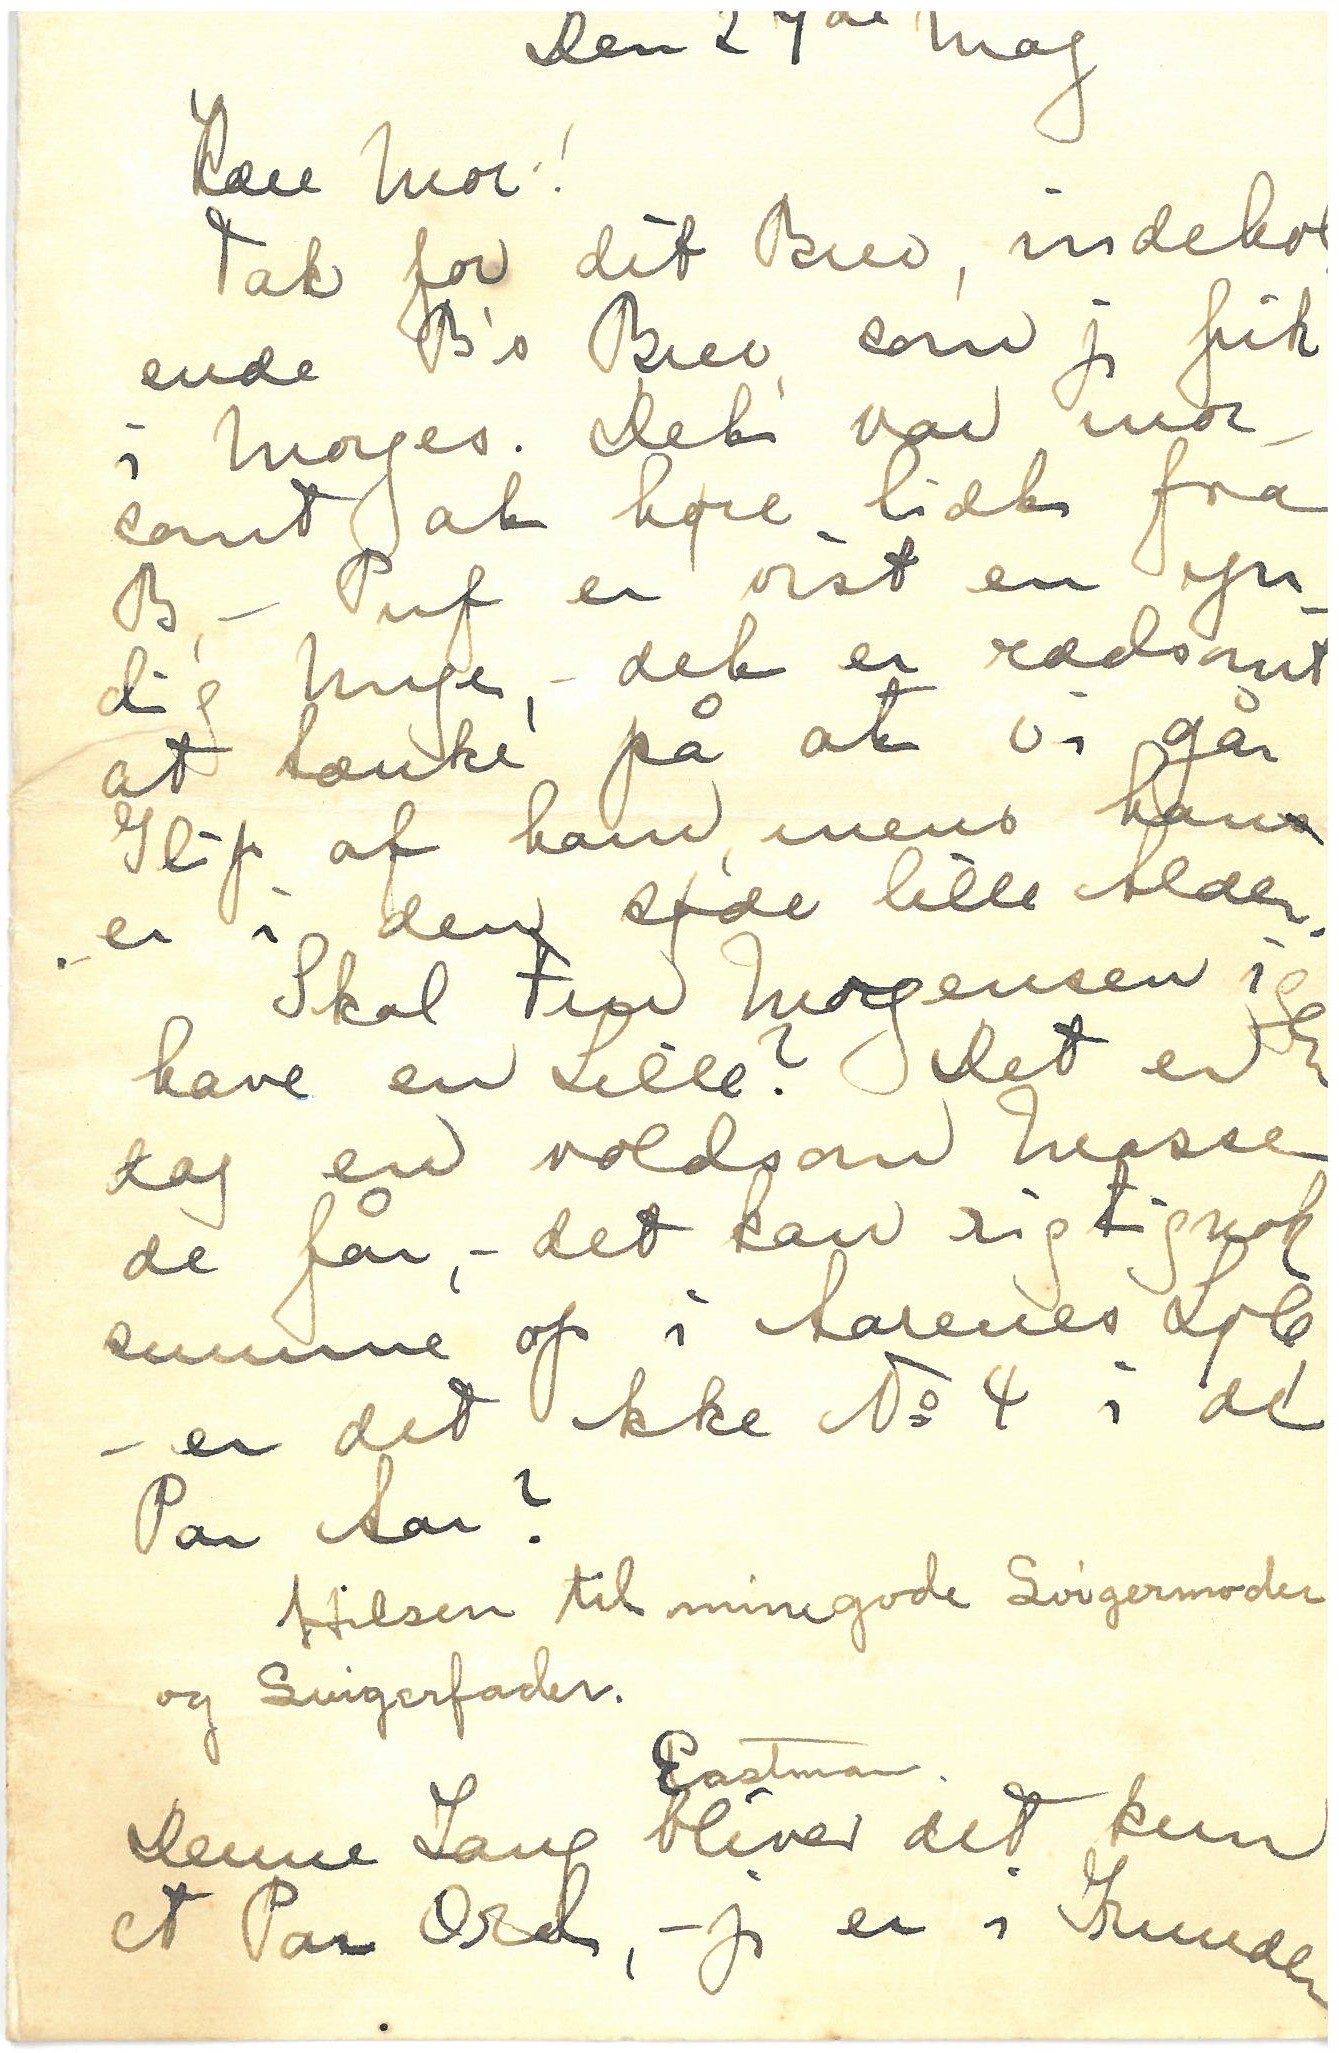 Den 27de Maj
Kære Mor!
Tak for dit Brev, indehol
ende B's Brev, som j: fik
i Morges. Det var mor-
somt at høre lidt fra
B, - Puf er vist en yn-
dig Unge, - det er rædsomt
at tænke på at vi går
Glip af ham, mens han
er i den søde lille Alder.
Skal Fru Mogensen igen
have en Lille? Det er
dog en voldsom Masse
de får, - det kan rigtignok
summe op i Aarenes Løb
- er det ikke No 4 i de
Par Aar?
Hilsen til mine gode Svigermoder
og Svigerfader.
Eastman.
Denne Gang bliver det kun
et Par Ord, - j: er i Grunden